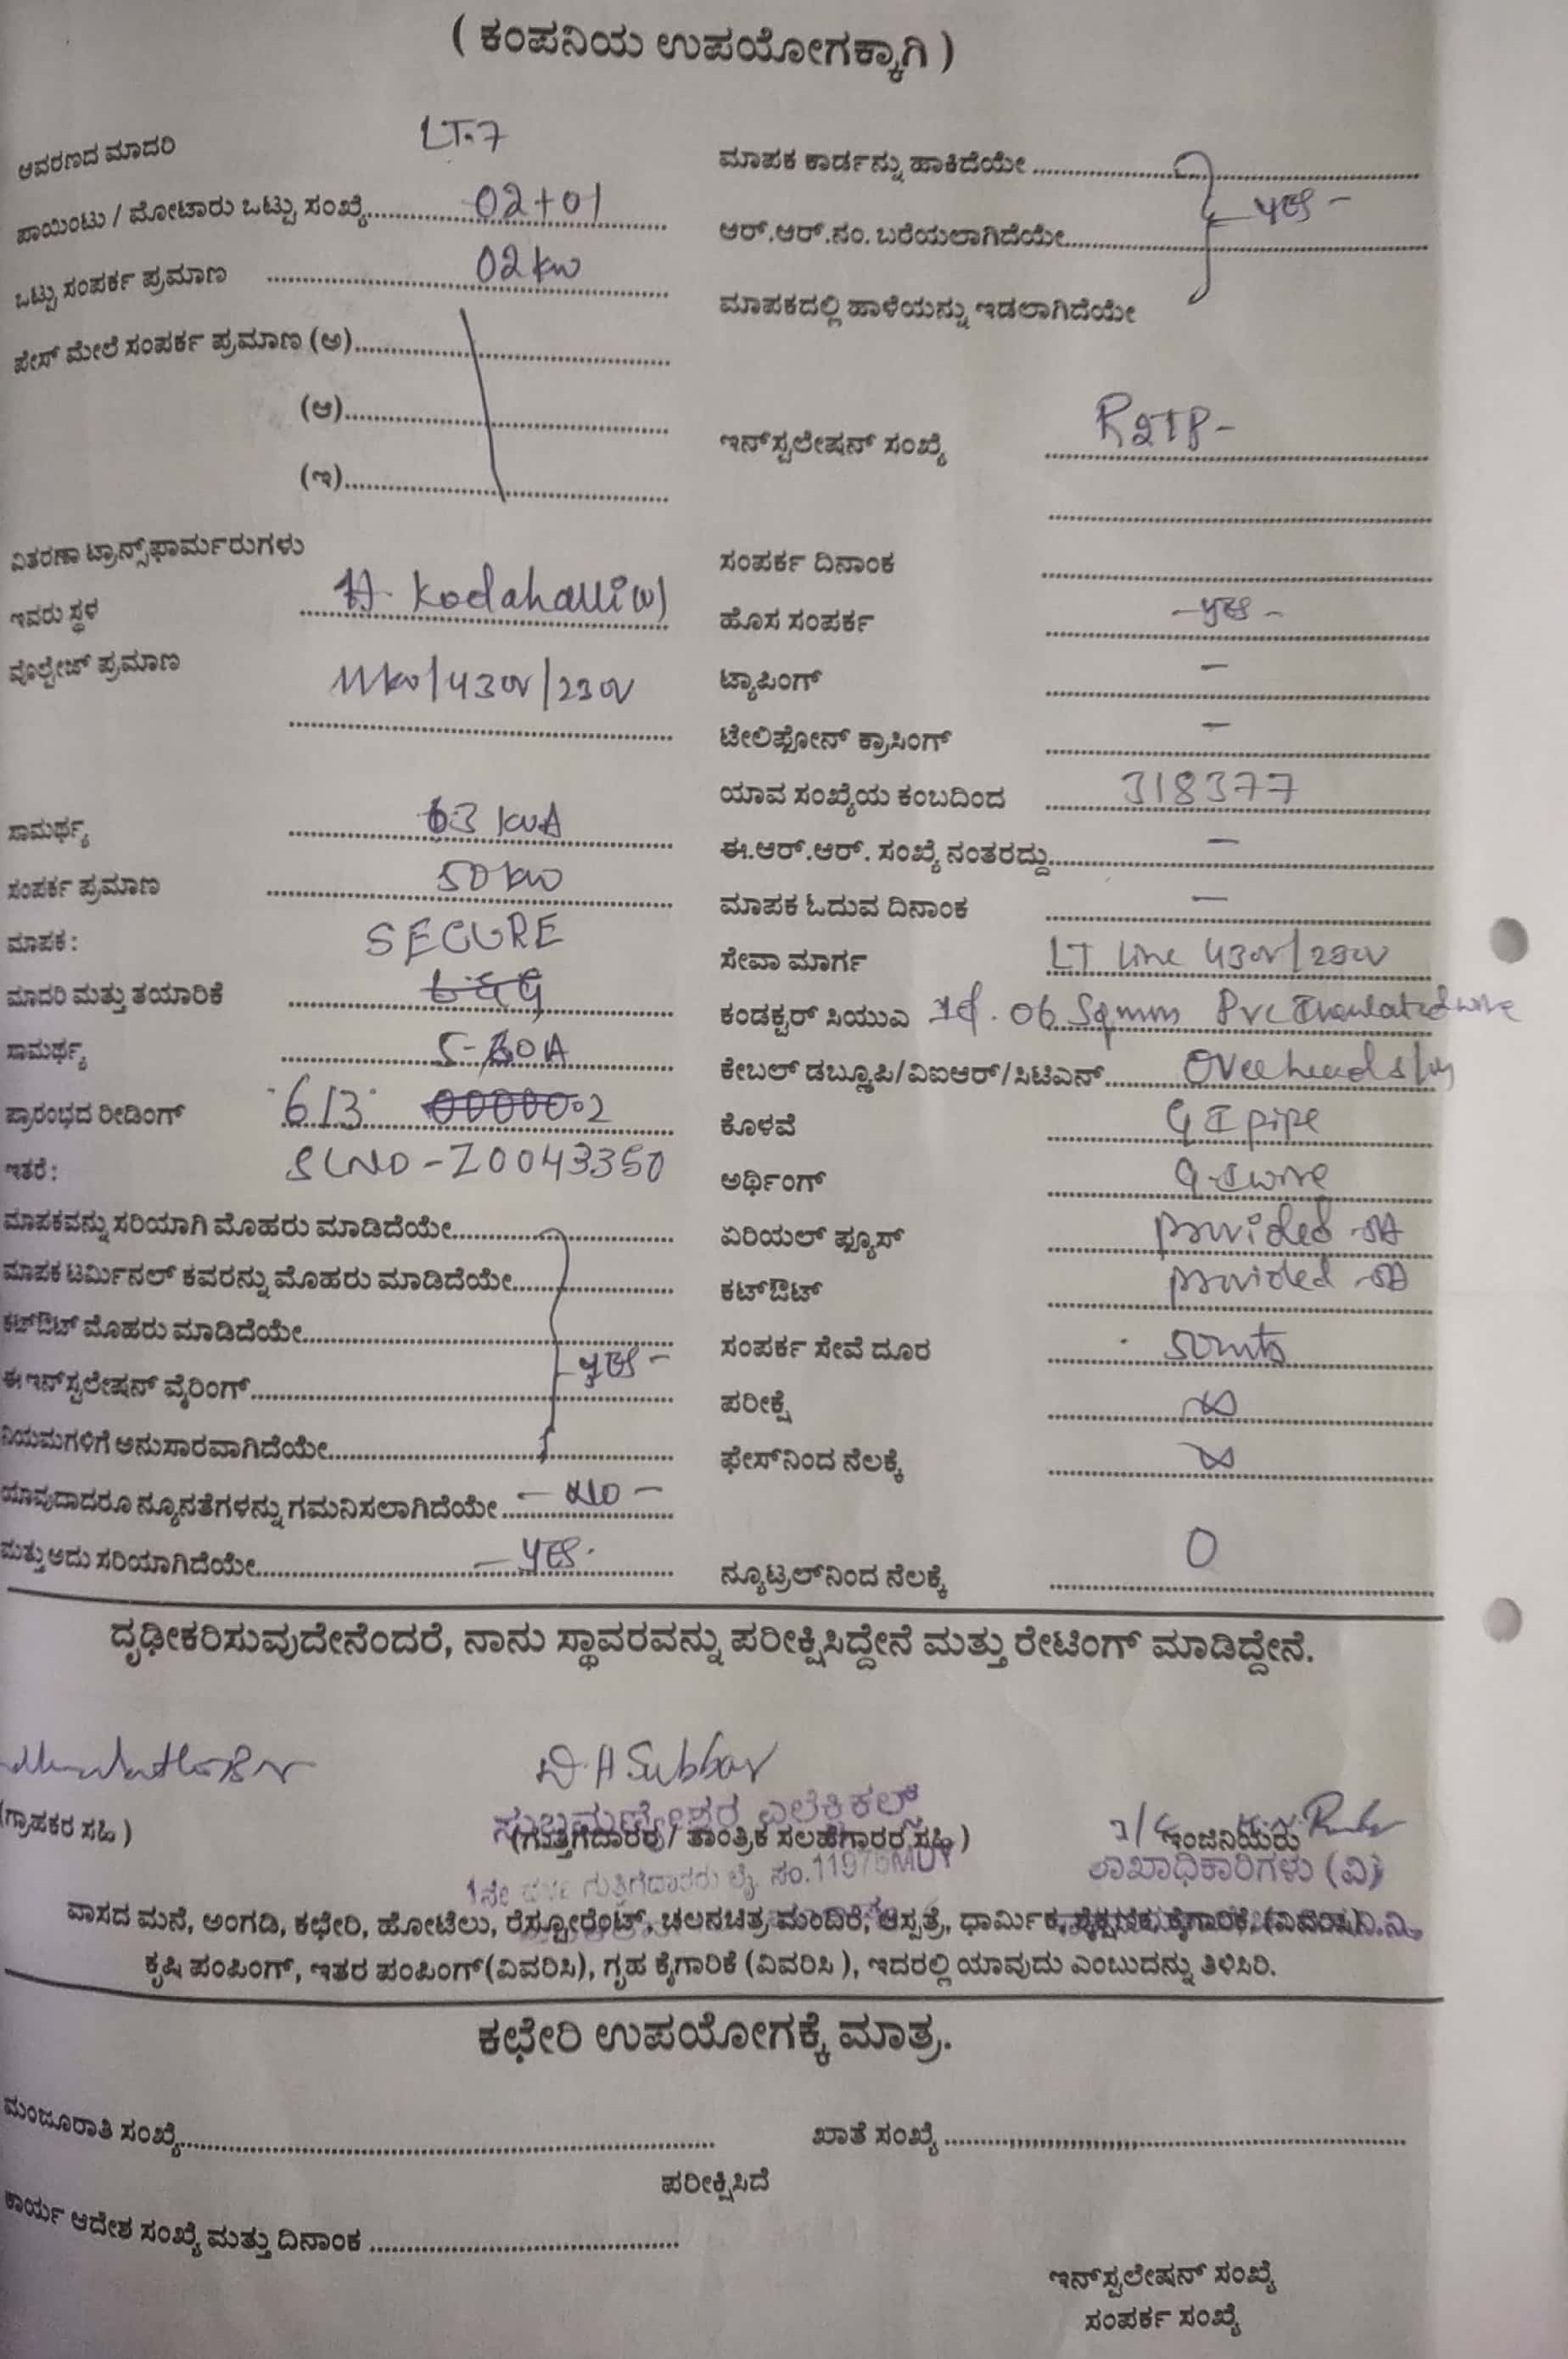 ( ಕಂಪನಿಯ ಉಪಯೋಗಕ್ಕಾಗಿ )
ಆವರಣದ ಮಾದರಿ LT-7
ಪಾಯಿಂಟು / ಮೋಟಾರು ಒಟ್ಟು ಸಂಖ್ಯೆ 02+01
ಒಟ್ಟು ಸಂಪರ್ಕ ಪ್ರಮಾಣ 02 kw
ಪೇಸ್ ಮೇಲೆ ಸಂಪರ್ಕ ಪ್ರಮಾಣ (ಅ)
(ಆ)
(ಇ)
ವಿತರಣಾ ಟ್ರಾನ್ಸ್‌ಫಾರ್ಮರುಗಳು
ಇವರು ಸ್ಥಳ H. Kodahalli (v)
ವೊಲ್ಟೇಜ್ ಪ್ರಮಾಣ 11kv/430V/230V
ಸಾಮರ್ಥ್ಯ 63 KVA
ಸಂಪರ್ಕ ಪ್ರಮಾಣ 50 kw
ಮಾಪಕ : SECURE
ಮಾದರಿ ಮತ್ತು ತಯಾರಿಕೆ
ಸಾಮರ್ಥ್ಯ 5-30A
ಪ್ರಾರಂಭದ ರೀಡಿಂಗ್ 613
ಇತರೆ : SLNO-Z0043350
ಮಾಪಕವನ್ನು ಸರಿಯಾಗಿ ಮೊಹರು ಮಾಡಿದೆಯೇ
ಮಾಪಕ ಟರ್ಮಿನಲ್ ಕವರನ್ನು ಮೊಹರು ಮಾಡಿದೆಯೇ
ಕಟ್‌ಔಟ್ ಮೊಹರು ಮಾಡಿದೆಯೇ
ಈ ಇನ್‌ಸ್ಟಲೇಷನ್ ವೈರಿಂಗ್ yes -
ನಿಯಮಗಳಿಗೆ ಅನುಸಾರವಾಗಿದೆಯೇ
ಯಾವುದಾದರೂ ನ್ಯೂನತೆಗಳನ್ನು ಗಮನಿಸಲಾಗಿದೆಯೇ - NO -
ಮತ್ತು ಅದು ಸರಿಯಾಗಿದೆಯೇ - YES -
ಮಾಪಕ ಕಾರ್ಡನ್ನು ಹಾಕಿದೆಯೇ
ಆರ್.ಆರ್.ನಂ. ಬರೆಯಲಾಗಿದೆಯೇ - yes -
ಮಾಪಕದಲ್ಲಿ ಹಾಳೆಯನ್ನು ಇಡಲಾಗಿದೆಯೇ
ಇನ್‌ಸ್ಟಲೇಷನ್ ಸಂಖ್ಯೆ
ಸಂಪರ್ಕ ದಿನಾಂಕ
ಹೊಸ ಸಂಪರ್ಕ - yes -
ಟ್ಯಾಪಿಂಗ್ -
ಟೇಲಿಫೋನ್ ಕ್ರಾಸಿಂಗ್ -
ಯಾವ ಸಂಖ್ಯೆಯ ಕಂಬದಿಂದ 318377
ಈ.ಆರ್.ಆರ್. ಸಂಖ್ಯೆ ನಂತರದ್ದು -
ಮಾಪಕ ಓದುವ ದಿನಾಂಕ -
ಸೇವಾ ಮಾರ್ಗ LT Line 430V/230V
ಕಂಡಕ್ಟರ್ ಸಿಯುಎ 06 Sqmm Pvc Insulated wire
ಕೇಬಲ್ ಡಬ್ಲೂಪಿ/ವಿಐಆರ್/ಸಿಟಿಎನ್ Overhead
ಕೊಳವೆ G I pipe
ಅರ್ಥಿಂಗ್ G-I wire
ಏರಿಯಲ್ ಫ್ಯೂಸ್ provided
ಕಟ್‌ಔಟ್ provided
ಸಂಪರ್ಕ ಸೇವೆ ದೂರ 50mts
ಪರೀಕ್ಷೆ ∞
ಫೇಸ್‌ನಿಂದ ನೆಲಕ್ಕೆ ∞
ನ್ಯೂಟ್ರಲ್‌ನಿಂದ ನೆಲಕ್ಕೆ 0
ದೃಢೀಕರಿಸುವುದೇನೆಂದರೆ, ನಾನು ಸ್ಥಾವರವನ್ನು ಪರೀಕ್ಷಿಸಿದ್ದೇನೆ ಮತ್ತು ರೇಟಿಂಗ್ ಮಾಡಿದ್ದೇನೆ.
D. A Subbar
ಸುಬ್ರಮಣ್ಯೇಶ್ವರ ಎಲೆಕ್ಟ್ರಿಕಲ್ಸ್
(ಗ್ರಾಹಕರ ಸಹಿ) (ಗುತ್ತಿಗೆದಾರರು / ತಾಂತ್ರಿಕ ಸಲಹೆಗಾರರ ಸಹಿ) ಇಂಜಿನಿಯರು
1ನೇ ದರ್ಜೆ ಗುತ್ತಿಗೆದಾರರು ಲೈ. ಸಂ. ಶಾಖಾಧಿಕಾರಿಗಳು (ವಿ)
ವಾಸದ ಮನೆ, ಅಂಗಡಿ, ಕಛೇರಿ, ಹೋಟೆಲು, ರೆಸ್ಟೋರೆಂಟ್, ಚಲನಚಿತ್ರ ಮಂದಿರ, ಆಸ್ಪತ್ರೆ, ಧಾರ್ಮಿಕ, ಶೈಕ್ಷಣಿಕ, ಕೈಗಾರಿಕೆ, (ವಿವರಿಸಿ)
ಕೃಷಿ ಪಂಪಿಂಗ್, ಇತರ ಪಂಪಿಂಗ್(ವಿವರಿಸಿ), ಗೃಹ ಕೈಗಾರಿಕೆ (ವಿವರಿಸಿ ), ಇದರಲ್ಲಿ ಯಾವುದು ಎಂಬುದನ್ನು ತಿಳಿಸಿರಿ.
ಕಛೇರಿ ಉಪಯೋಗಕ್ಕೆ ಮಾತ್ರ.
ಮಂಜೂರಾತಿ ಸಂಖ್ಯೆ ಖಾತೆ ಸಂಖ್ಯೆ
ಪರೀಕ್ಷಿಸಿದೆ
ಕಾರ್ಯ ಆದೇಶ ಸಂಖ್ಯೆ ಮತ್ತು ದಿನಾಂಕ
ಇನ್‌ಸ್ಟಲೇಷನ್ ಸಂಖ್ಯೆ
ಸಂಪರ್ಕ ಸಂಖ್ಯೆ